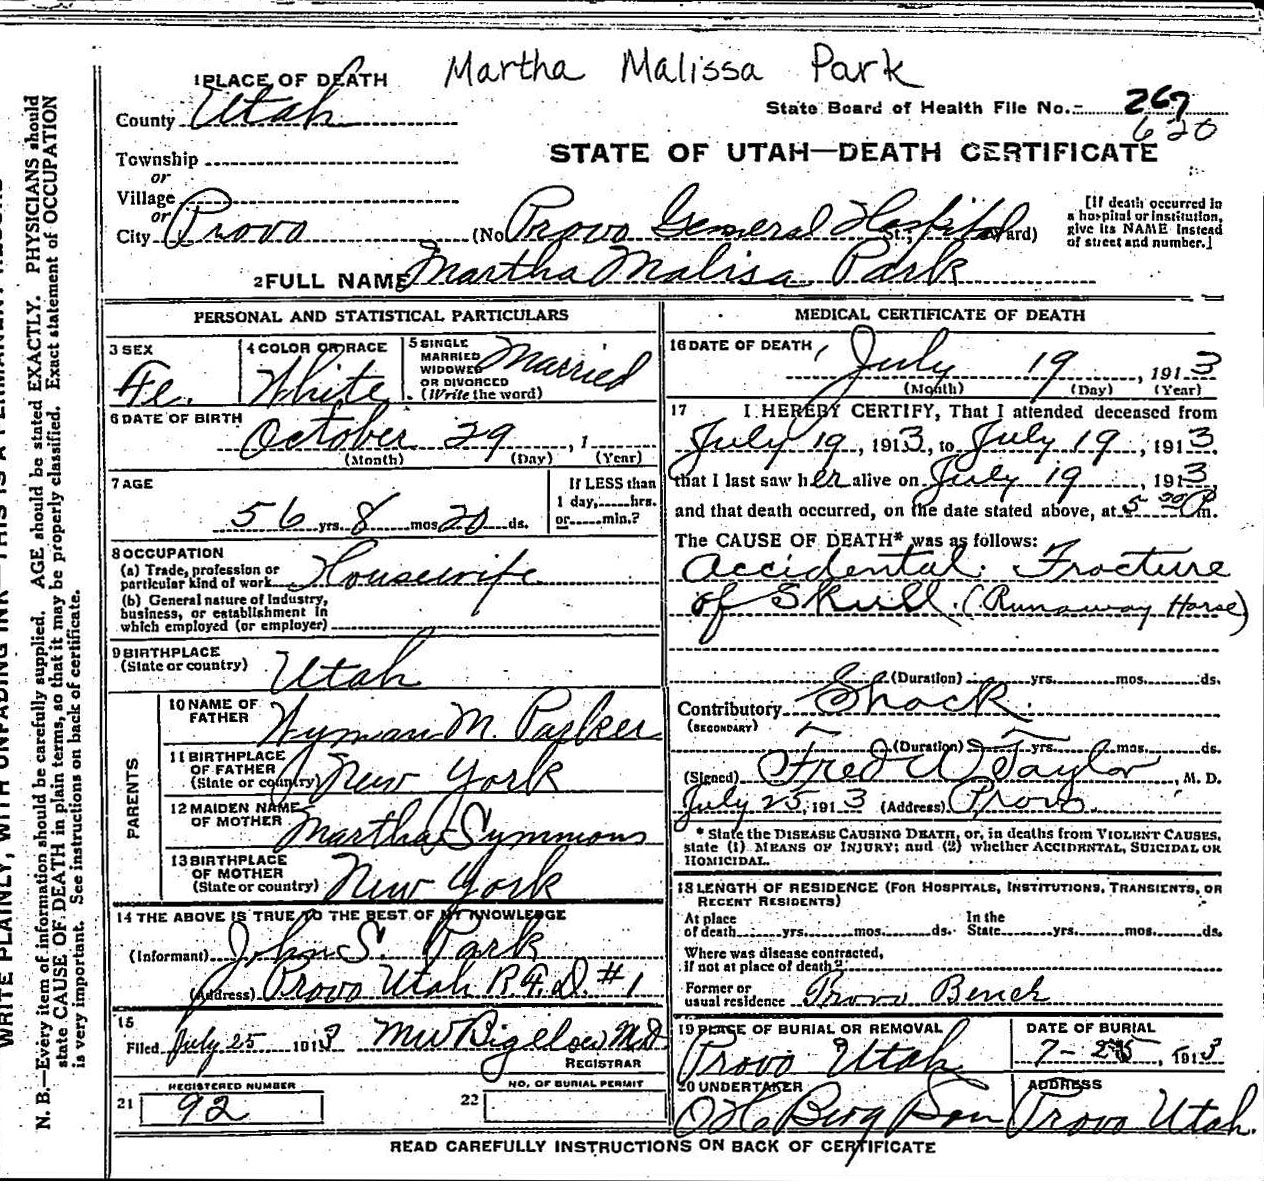 Martha Malissa Park
1 PLACE OF DEATH
State Board of Health File No. 267
620
County Utah
STATE OF UTAH—DEATH CERTIFICATE
Township
or
Village
or
City Provo (No. Provo General Hospital St.; Ward)
[If death occurred in
a hospital or institution,
give its NAME instead
of street and number.]
2 FULL NAME Martha Malisa Park
PERSONAL AND STATISTICAL PARTICULARS
3 SEX
Fe.
4 COLOR OR RACE
White
5 SINGLE
MARRIED
WIDOWED
OR DIVORCED
(Write the word)
Married
6 DATE OF BIRTH
October 29, 1
(Month) (Day) (Year)
7 AGE
56 yrs. 8 mos. 20 ds.
If LESS than
1 day, hrs.
or min.?
8 OCCUPATION
(a) Trade, profession or
particular kind of work Housewife
(b) General nature of Industry,
business, or establishment in
which employed (or employer)
9 BIRTHPLACE
(State or country) Utah
PARENTS
10 NAME OF
FATHER Wyman M. Parker
11 BIRTHPLACE
OF FATHER
(State or country) New York
12 MAIDEN NAME
OF MOTHER Martha Symmons
13 BIRTHPLACE
OF MOTHER
(State or country) New York
14 THE ABOVE IS TRUE TO THE BEST OF MY KNOWLEDGE
(Informant) John S. Park
(Address) Provo Utah R.F.D. #1
15
Filed July 25 1913 M W Bigelow M.D.
REGISTRAR
21 REGISTERED NUMBER
92
22 NO. OF BURIAL PERMIT
MEDICAL CERTIFICATE OF DEATH
16 DATE OF DEATH
July 19, 1913
(Month) (Day) (Year)
17 I HEREBY CERTIFY, That I attended deceased from
July 19, 1913, to July 19, 1913
that I last saw her alive on July 19, 1913,
and that death occurred, on the date stated above, at 5 30 P m.
The CAUSE OF DEATH* was as follows:
Accidental. Fracture
of Skull. (Runaway Horse)
(Duration) yrs. mos. ds.
Contributory Shock.
(SECONDARY)
(Duration) yrs. mos. ds.
(Signed) Fred W Taylor, M. D.
July 25, 1913 (Address) Provo.
* State the DISEASE CAUSING DEATH, or, in deaths from VIOLENT CAUSES,
state (1) MEANS OF INJURY; and (2) whether ACCIDENTAL, SUICIDAL OR
HOMICIDAL.
18 LENGTH OF RESIDENCE (FOR HOSPITALS, INSTITUTIONS, TRANSIENTS, OR
RECENT RESIDENTS)
At place
of death yrs. mos. ds.
In the
State yrs. mos. ds.
Where was disease contracted,
if not at place of death?
Former or
usual residence Provo Bench
19 PLACE OF BURIAL OR REMOVAL
Provo Utah
DATE OF BURIAL
7-25, 1913
20 UNDERTAKER
O H Berg Son
ADDRESS
Provo Utah.
READ CAREFULLY INSTRUCTIONS ON BACK OF CERTIFICATE
N. B.—Every item of information should be carefully supplied. AGE should be stated EXACTLY. PHYSICIANS should
state CAUSE OF DEATH in plain terms, so that it may be properly classified. Exact statement of OCCUPATION
is very important. See instructions on back of certificate.
WRITE PLAINLY, WITH UNFADING INK—THIS IS A PERMANENT RECORD